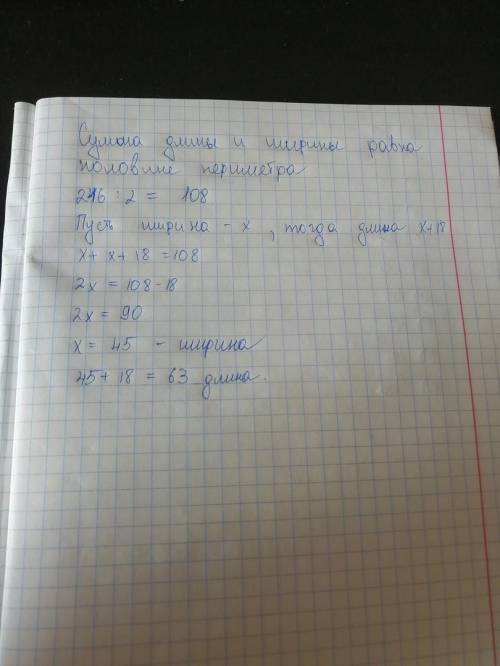 Сумма длины и ширины равна
половине периметра
216 : 2 = 108
Пусть ширина - x , тогда длина x+18
x + x + 18 = 108
2x = 108 - 18
2x = 90
x = 45 - ширина
45 + 18 = 63 длина.